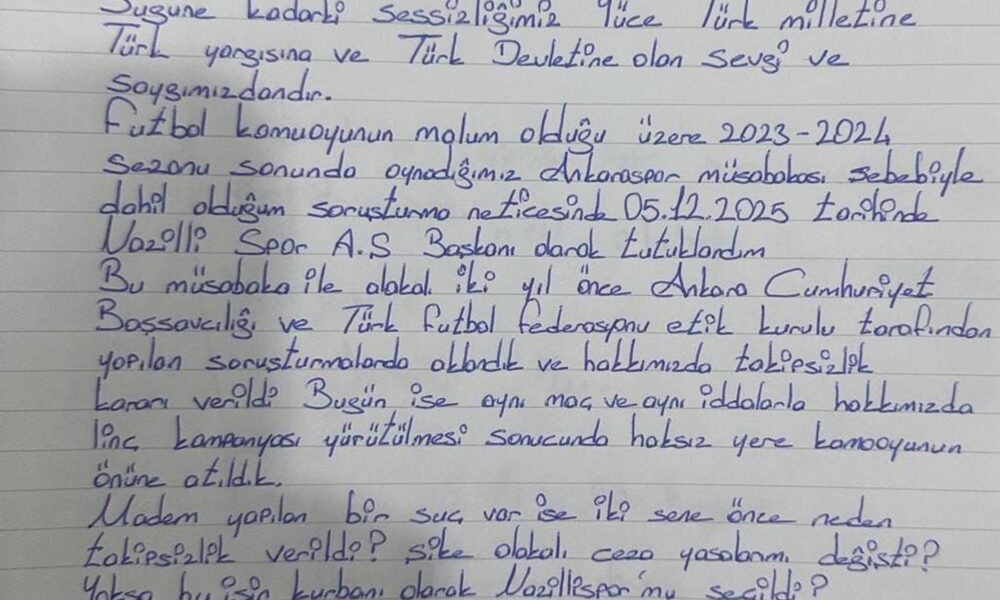 Bugüne kadarki sessizliğimiz Yüce Türk milletine
Türk yargısına ve Türk Devletine olan sevgi ve
saygımızdandır.
Futbol kamuoyunun malum olduğu üzere 2023-2024
sezonu sonunda oynadığımız Ankaraspor müsabakası sebebiyle
dahil olduğum soruşturma neticesinde 05.12.2025 tarihinde
Nazilli Spor A.Ş Başkanı olarak tutuklandım
Bu müsabaka ile alakalı iki yıl önce Ankara Cumhuriyet
Başsavcılığı ve Türk futbol federasyonu etik kurulu tarafından
yapılan soruşturmalarda aklandık ve hakkımızda takipsizlik
kararı verildi Bugün ise aynı maç ve aynı iddalarla hakkımızda
linç kampanyası yürütülmesi sonucunda haksız yere kamooyunun
önüne atıldık.
Madem yapılan bir suç var ise iki sene önce neden
takipsizlik verildi? şike alakalı ceza yasalarımı değişti?
Yoksa bu işin kurbanı olarak Nazillispor'mu seçildi?